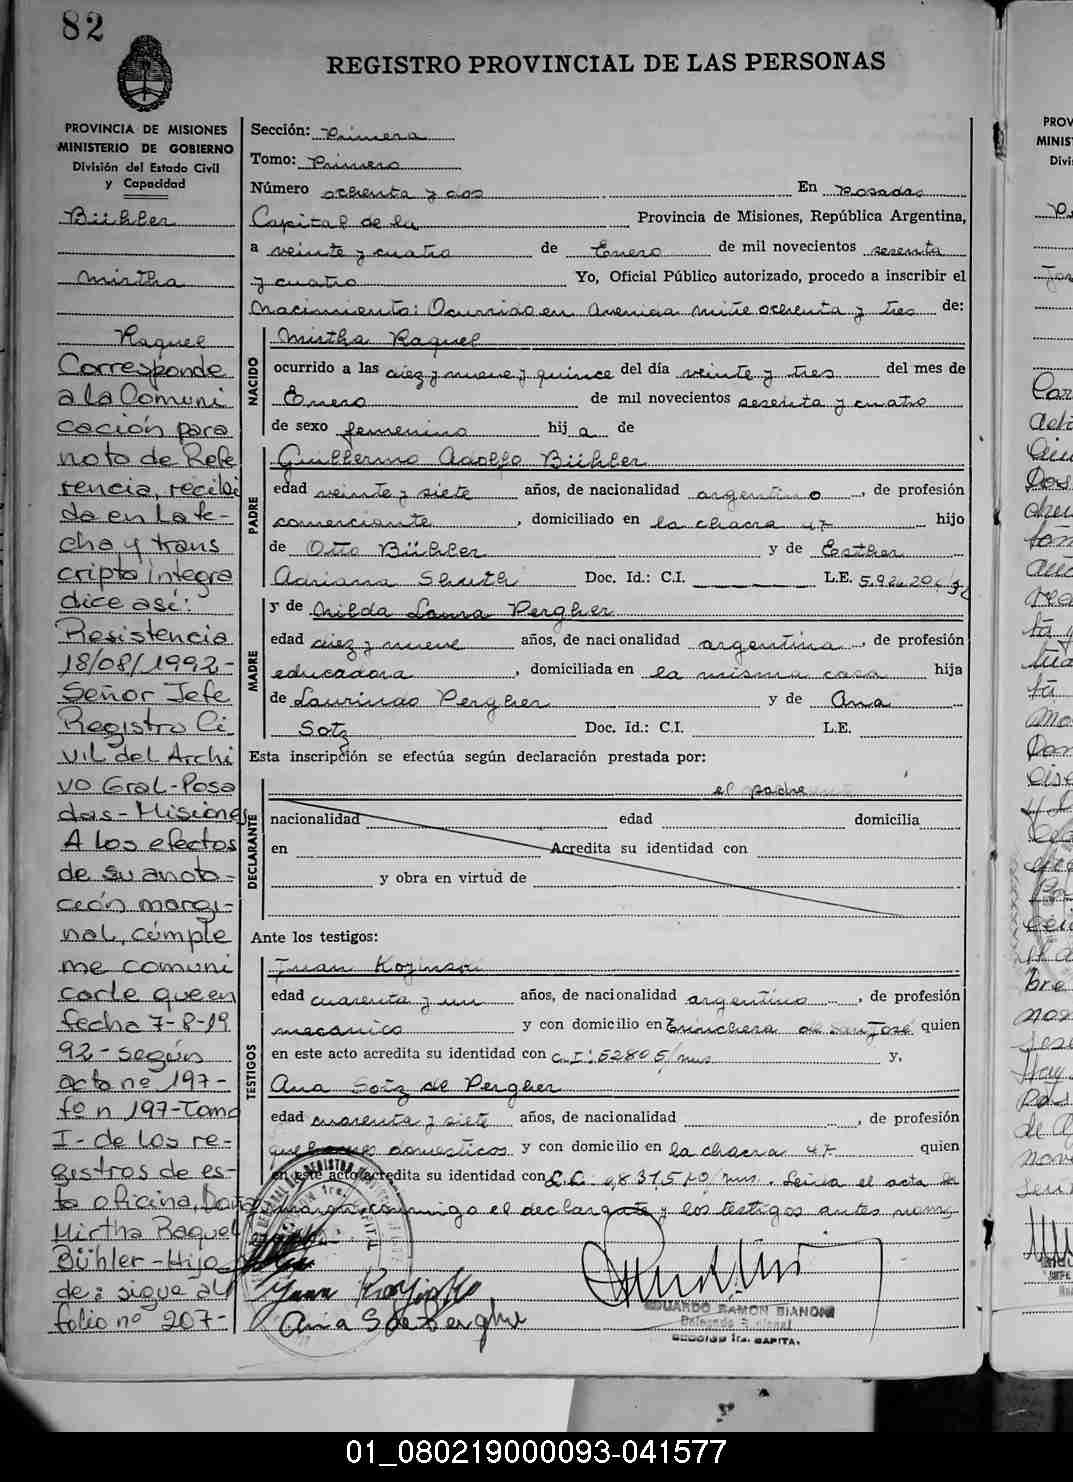 82
REGISTRO PROVINCIAL DE LAS PERSONAS
PROVINCIA DE MISIONES
MINISTERIO DE GOBIERNO
División del Estado Civil
y Capacidad
Bühler
Mirtha
Raquel
Corresponde
a la Comuni
cación para
nota de Refe
rencia, recibi
da en la fe-
cha y trans
cripta íntegra
dice así:
Resistencia
18/08/1992-
Señor Jefe
Registro Ci
vil del Archi
vo Gral-Posa
das-Misiones
A los efectos
de su anota-
ción margi-
nal, cúmple
me comuni
carle que en
fecha 7-8-19
92-según
acta nº 197-
fº n 197-Tomo
I-de los re-
gistros de es-
ta oficina,
Mirtha Raquel
Bühler-Hija
de: sigue al
folio nº 207-
Sección: Primera
Tomo: Primero
Número ochenta y dos En Posadas
Capital de la Provincia de Misiones, República Argentina,
a veinte y cuatro de Enero de mil novecientos sesenta
y cuatro Yo, Oficial Público autorizado, procedo a inscribir el
Nacimiento: Ocurrido en Avenida Mitre ochenta y tres de:
NACIDO
Mirtha Raquel
ocurrido a las diez y nueve y quince del día veinte y tres del mes de
Enero de mil novecientos sesenta y cuatro
de sexo femenino hij a de
PADRE
Guillermo Adolfo Bühler
edad veinte y siete años, de nacionalidad argentino, de profesión
comerciante, domiciliado en la chacra 47 hijo
de Otto Bühler y de Esther
Adriana Doc. Id.: C.I. L.E.
y de Nilda Laura Pergher
MADRE
edad diez y nueve años, de nacionalidad argentina, de profesión
educadora, domiciliada en la misma casa hija
de Laurindo Pergher y de Ana
Sotz Doc. Id.: C.I. L.E.
Esta inscripción se efectúa según declaración prestada por:
DECLARANTE
el padre
nacionalidad edad domicilia
en Acredita su identidad con
y obra en virtud de
Ante los testigos:
TESTIGOS
Juan
edad cuarenta y un años, de nacionalidad argentino, de profesión
mecánico y con domicilio en Trinchera de San José quien
en este acto acredita su identidad con C.I: 52805/mns y,
Ana Sotz de Pergher
edad cuarenta y siete años, de nacionalidad, de profesión
quehaceres domesticos y con domicilio en la chacra 47 quien
en este acto acredita su identidad con Leida el acta la
conmigo el declarante y los testigos antes nom
Juan
Ana S de Perghe
EDUARDO RAMON BIANONI
Delegado
SECCION 1ra. CAPITA.
PROV
MINIS
Divi
01_080219000093-041577